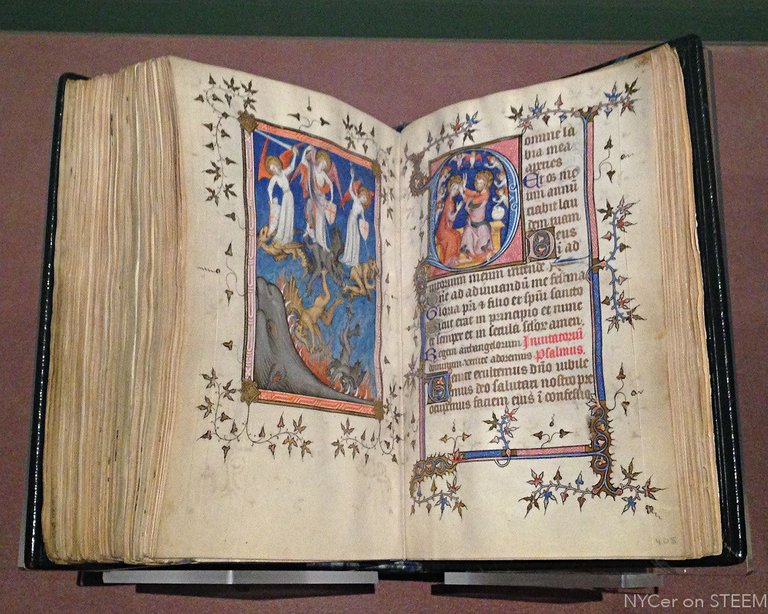 Domine la
bia mea
aperies
Et os me
um annū
ciabit lau
dem tuam
Deus
ī ad
iutorium meum intende
Dñe ad adiuuandū me festina
Gloria pr̄i & filio et spūi sancto
Sicut erat in principio et nunc
et semper et in secula sclor̄ amen.
Regem archangelorum Inuitatoriū.
dominum venite adoremus Psalmus.
Uenite exultemus dn̄o iubile
mus deo salutari nostro pre
occupemus faciem eius ī confessio
408
NYCer on STEEM